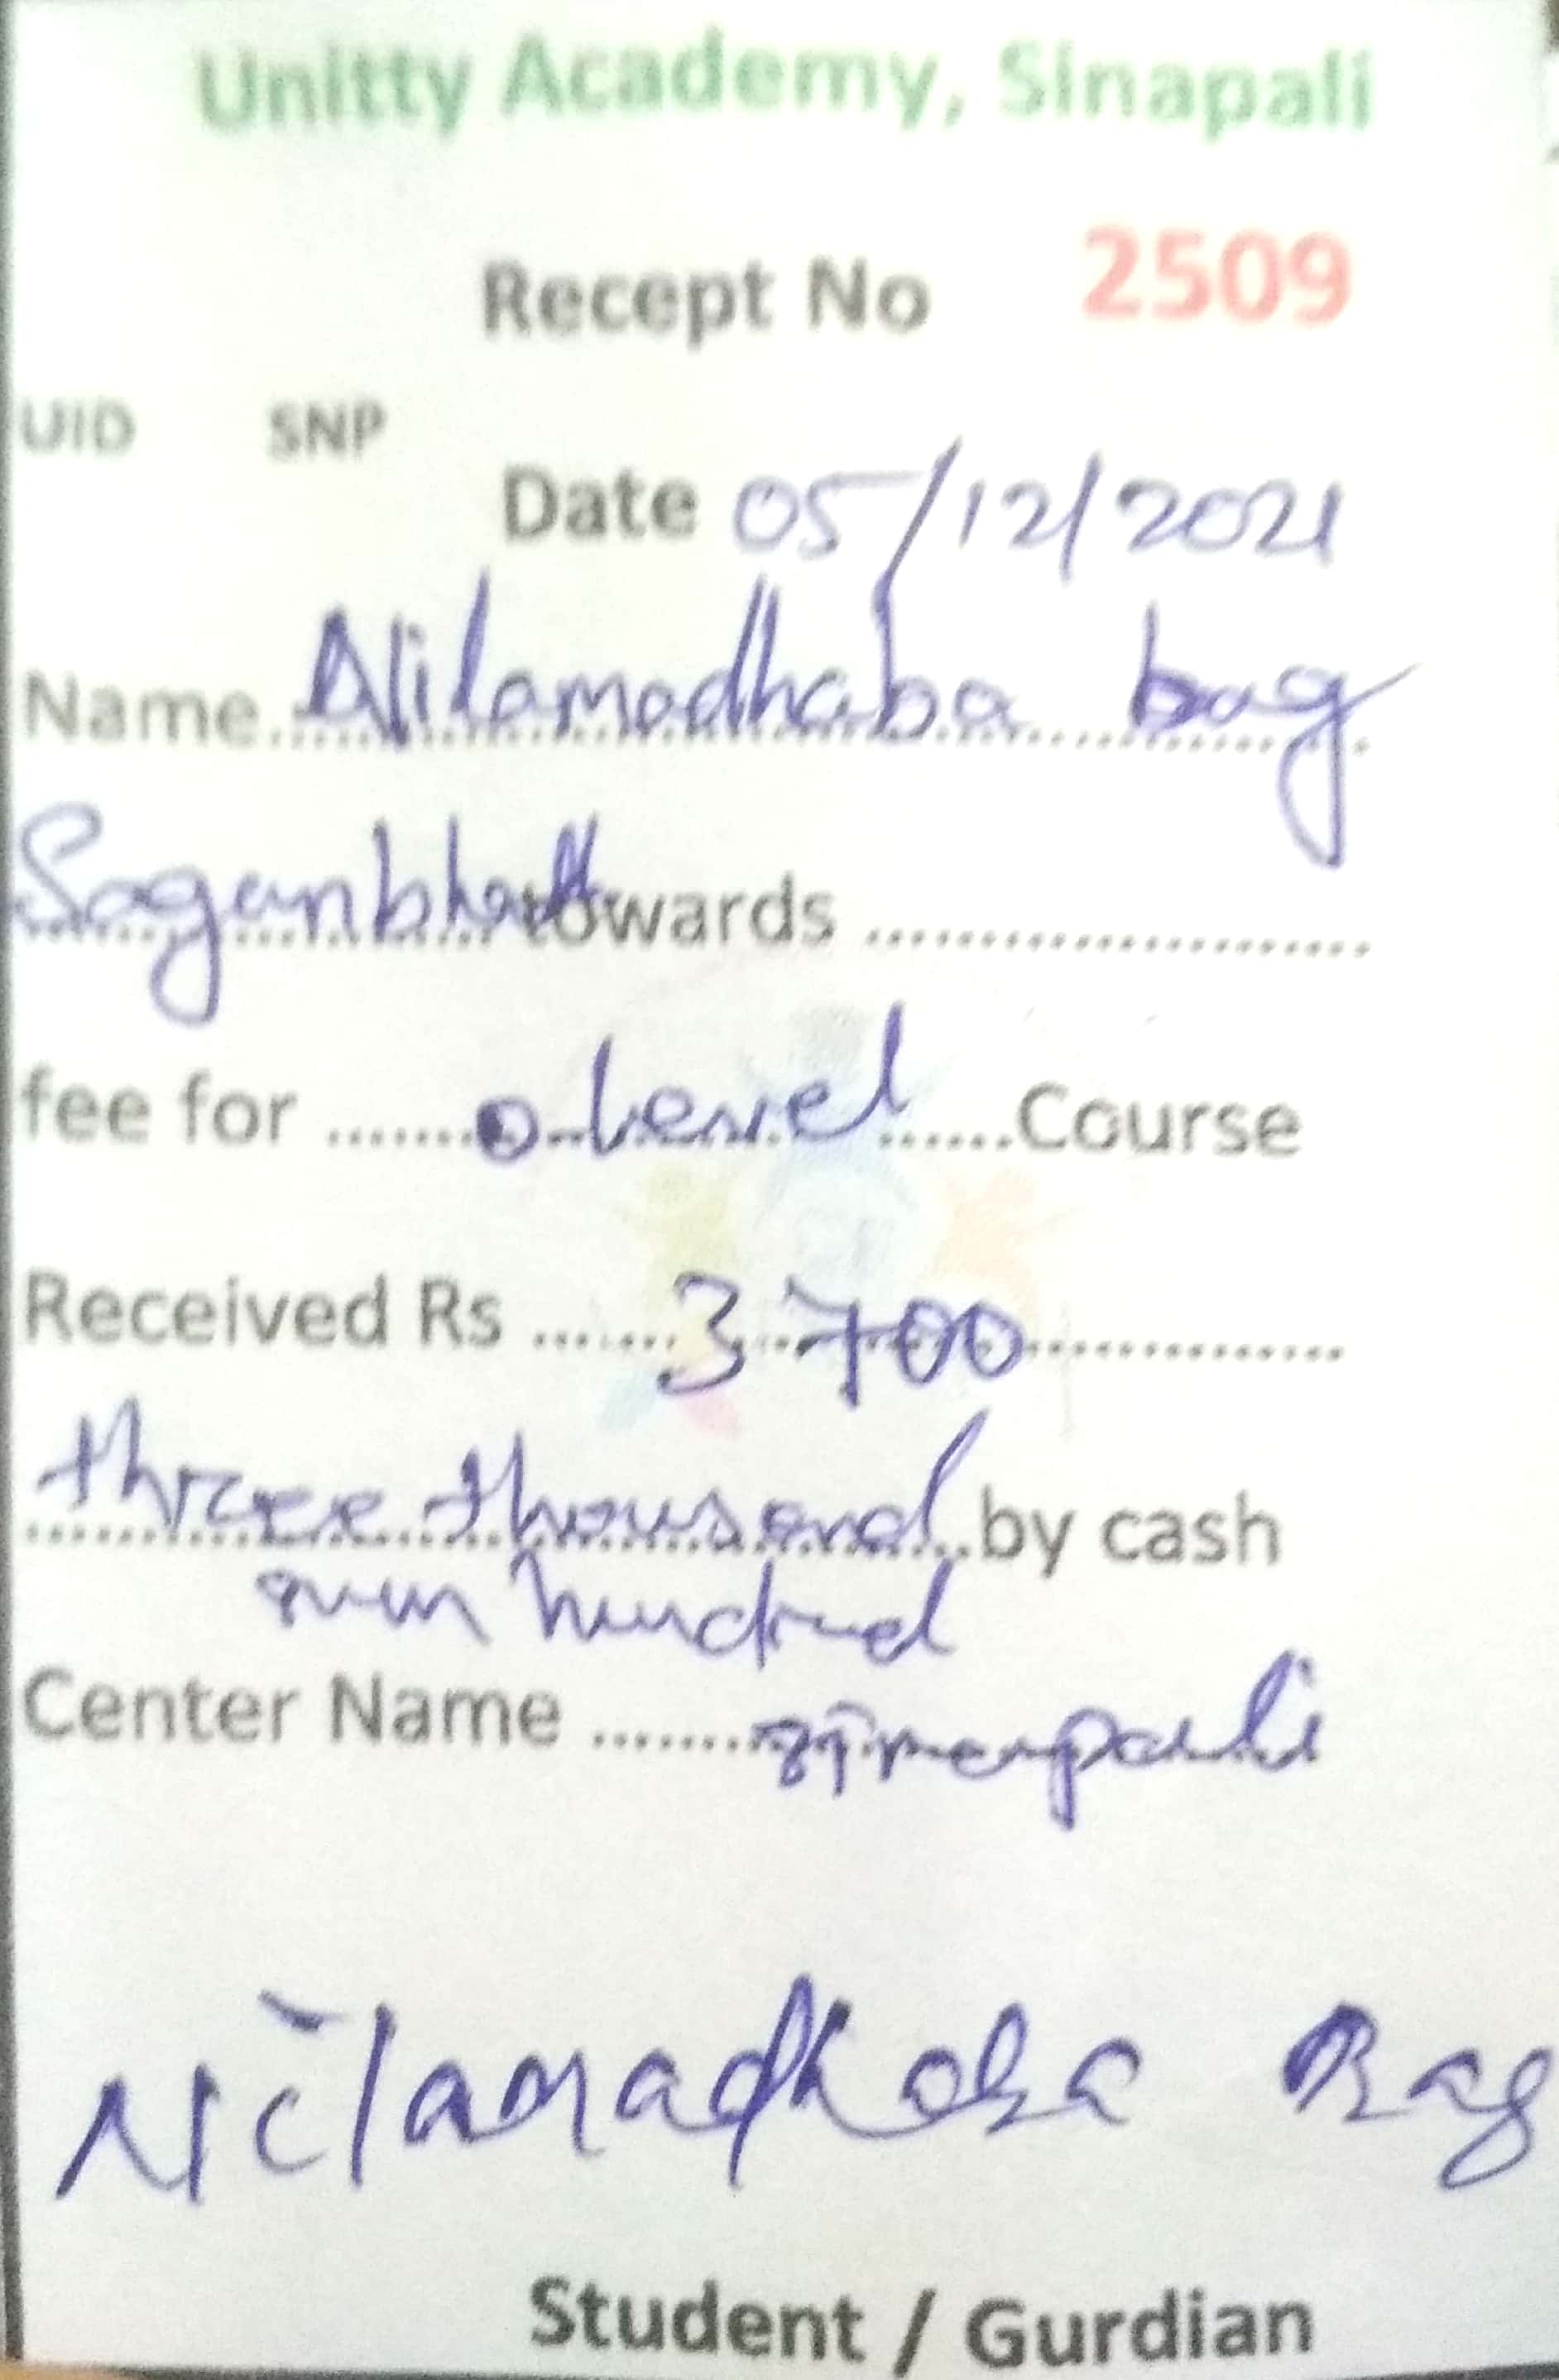 Unitty Academy, Sinapali
Recept No 2509
UID SNP
Date 05/12/2021
Name Nilamadhaba bag
towards
fee for O Level Course
Received Rs 3700
three thousand by cash
seven hundred
Center Name sinapali
Nilamadhaba Bag
Student / Gurdian